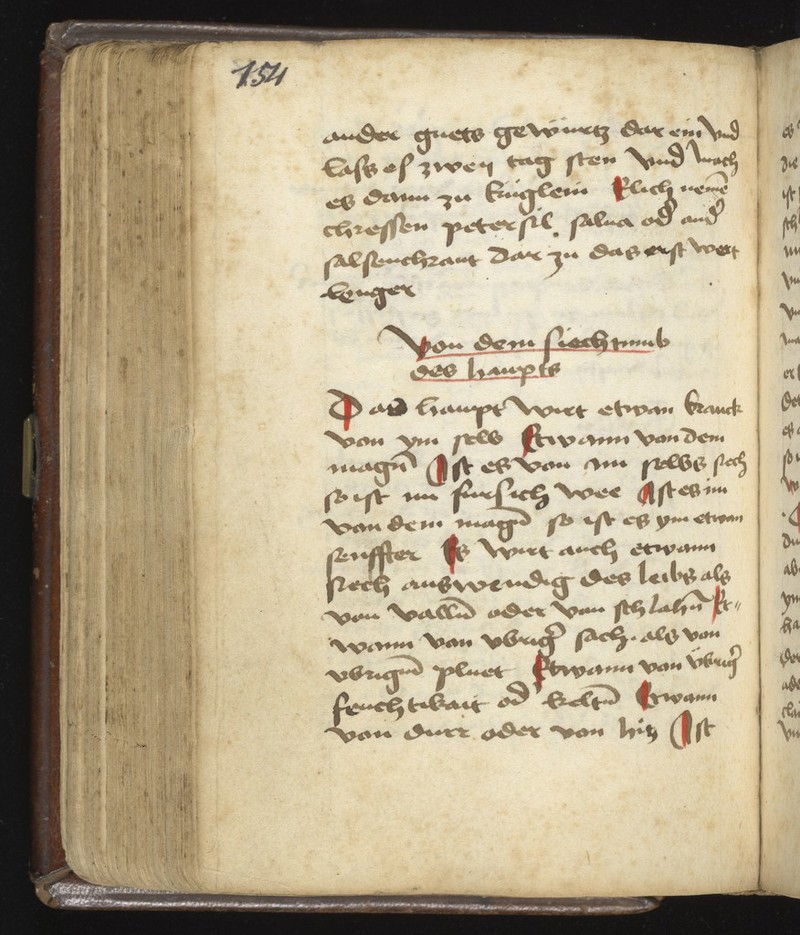 154
ander guets gewürtz dar ein vnd
lass es zwen tag sten vnd mach
es dann zu kuglein Etlich nemē
chressen petersil salua od̄ and̄
salsenchraut dar zu das erst wert
lenger
Von dem siechtumb
des haupts
Das haupt wirt etwan kranck
von ym selb Etwann von dem
magen̄ Ist es von im selbs siech
so ist im fursich wee Ist es im
von dem magen̄ so ist es ym etwan
senffter Es wirt auch etwann
siech auswendig des leibs als
von vallen̄ oder von schlahen̄ Et=
wann von vbriḡ sach. als von
vbrigem̄ pluet Etwann von vbriḡ
feuchtikait od̄ kelten̄ Etwann
von durr oder von hitz Ist